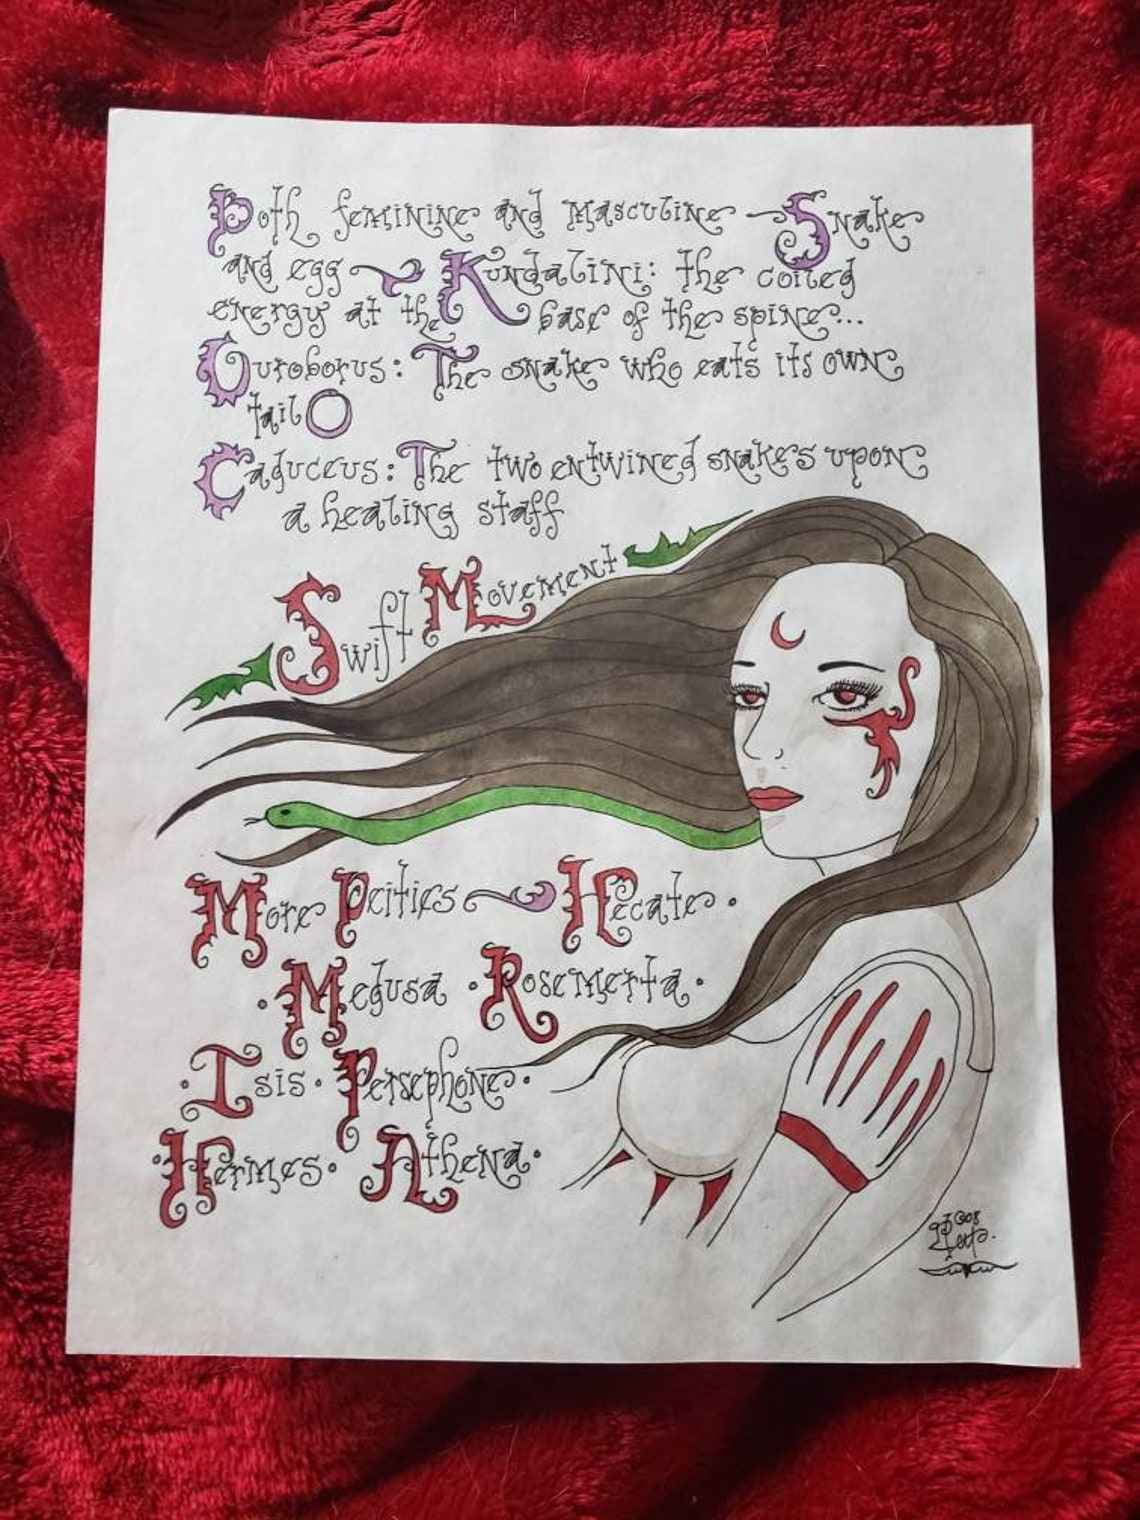 Both feminine and masculine ~ Snake
and egg ~ Kundalini: the coiled
energy at the base of the spine...
Ouroborus: The snake who eats its own
tail
Caduceus: The two entwined snakes upon
a healing staff
Swift Movement
More Deities ~ Hecate ·
· Medusa · Rosemerta ·
· Isis · Persephone ·
· Hermes · Athena ·